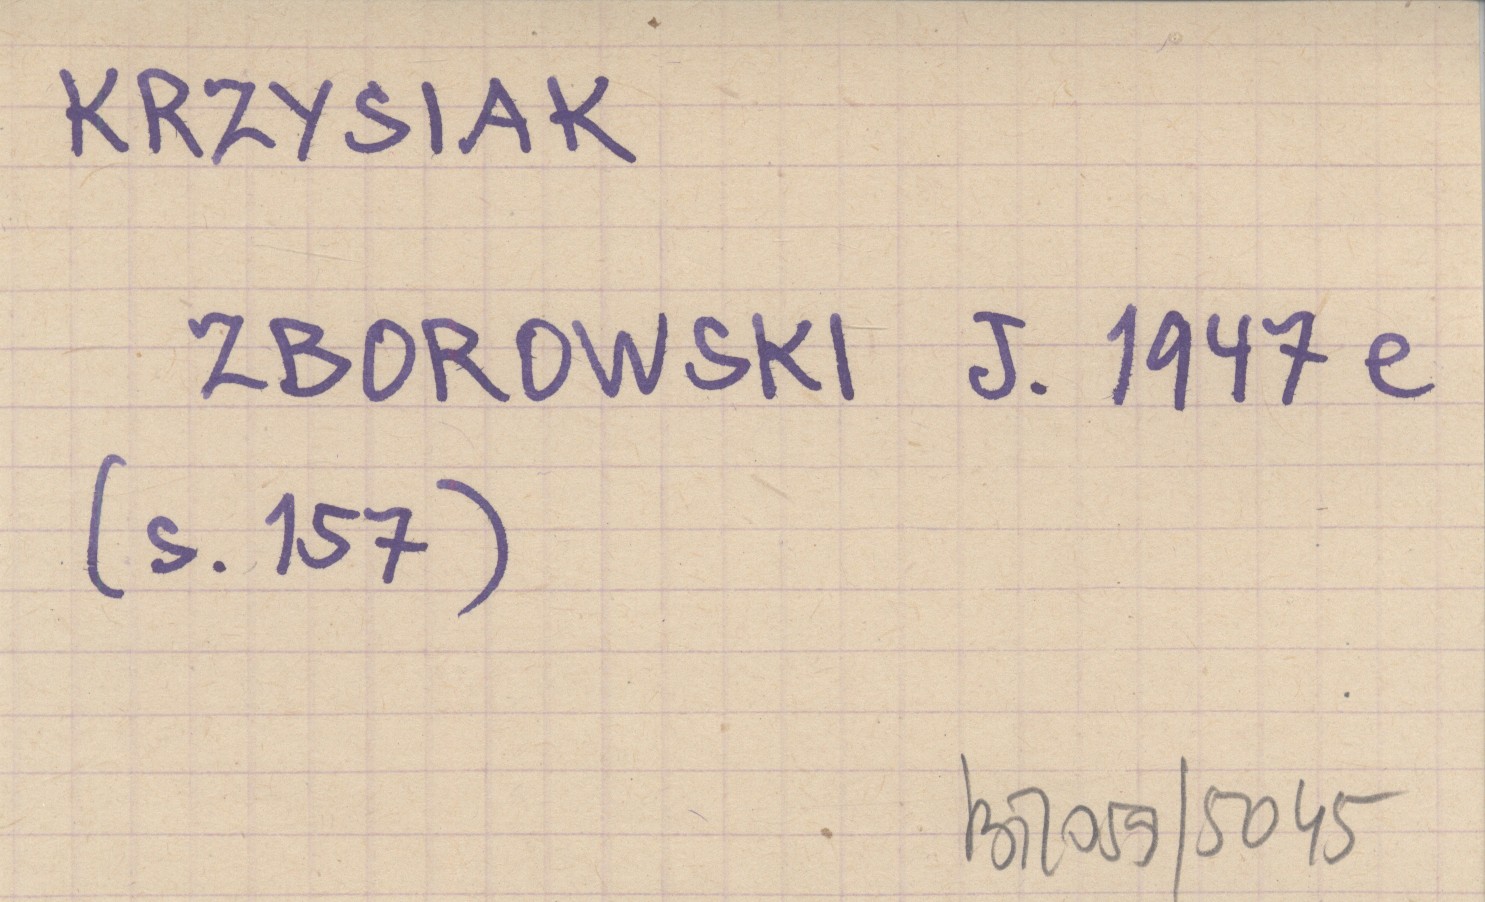 KRZYSIAK
ZBOROWSKI J. 1947 e
(s. 157)
5045